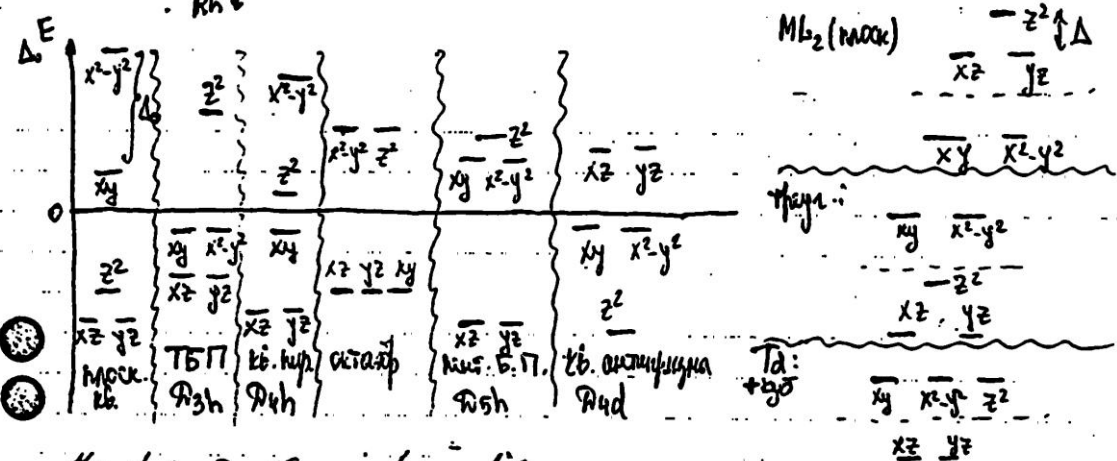 ΔₒE
0
x²-y²
Δₒ
xy
z²
xz yz
плоск.
кв.
z²
xy x²-y²
xz yz
ТБП
D3h
x²-y²
z²
xy
xz yz
кв. пир.
D4h
x²-y² z²
xz yz xy
октаэдр
z²
xy x²-y²
xz yz
D5h
xz yz
xy x²-y²
z²
кв. антипризма
D4d
ML₂ (плоск)
z² Δ
xz yz
xy x²-y²
xy x²-y²
z²
xz, yz
Td:
xy x²-y² z²
xz yz